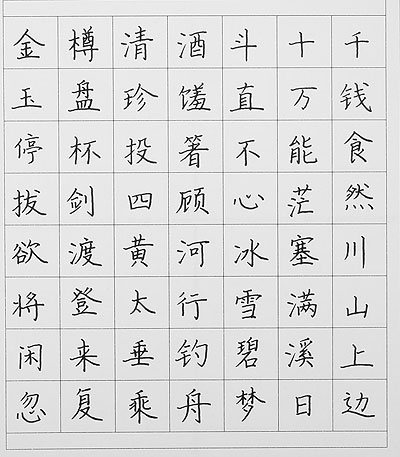 金樽清酒斗十千
玉盘珍馐直万钱
停杯投箸不能食
拔剑四顾心茫然
欲渡黄河冰塞川
将登太行雪满山
闲来垂钓碧溪上
忽复乘舟梦日边